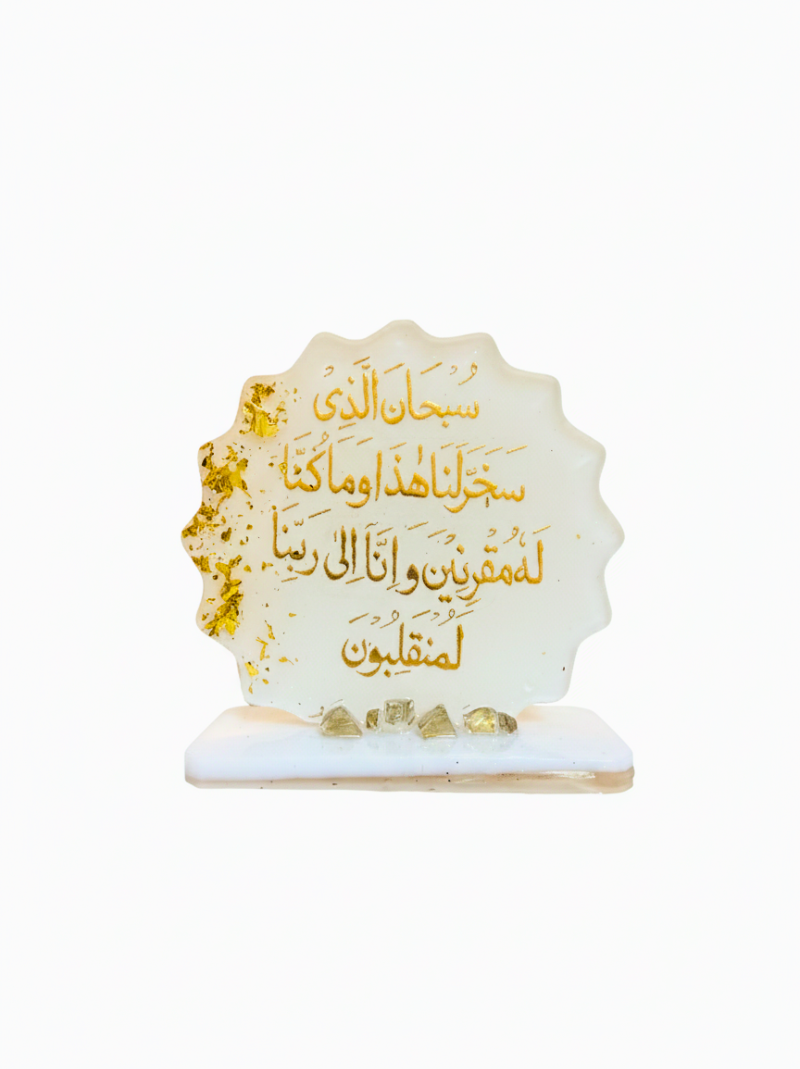 سُبحَانَ الَّذِىْ
سَخَّرَلَنَا هٰذَا وَمَا كُنَّا
لَهُ مُقْرِنِيْنَ وَاِنَّآ اِلىٰ رَبِّنَا
لَمُنْقَلِبُوْنَ